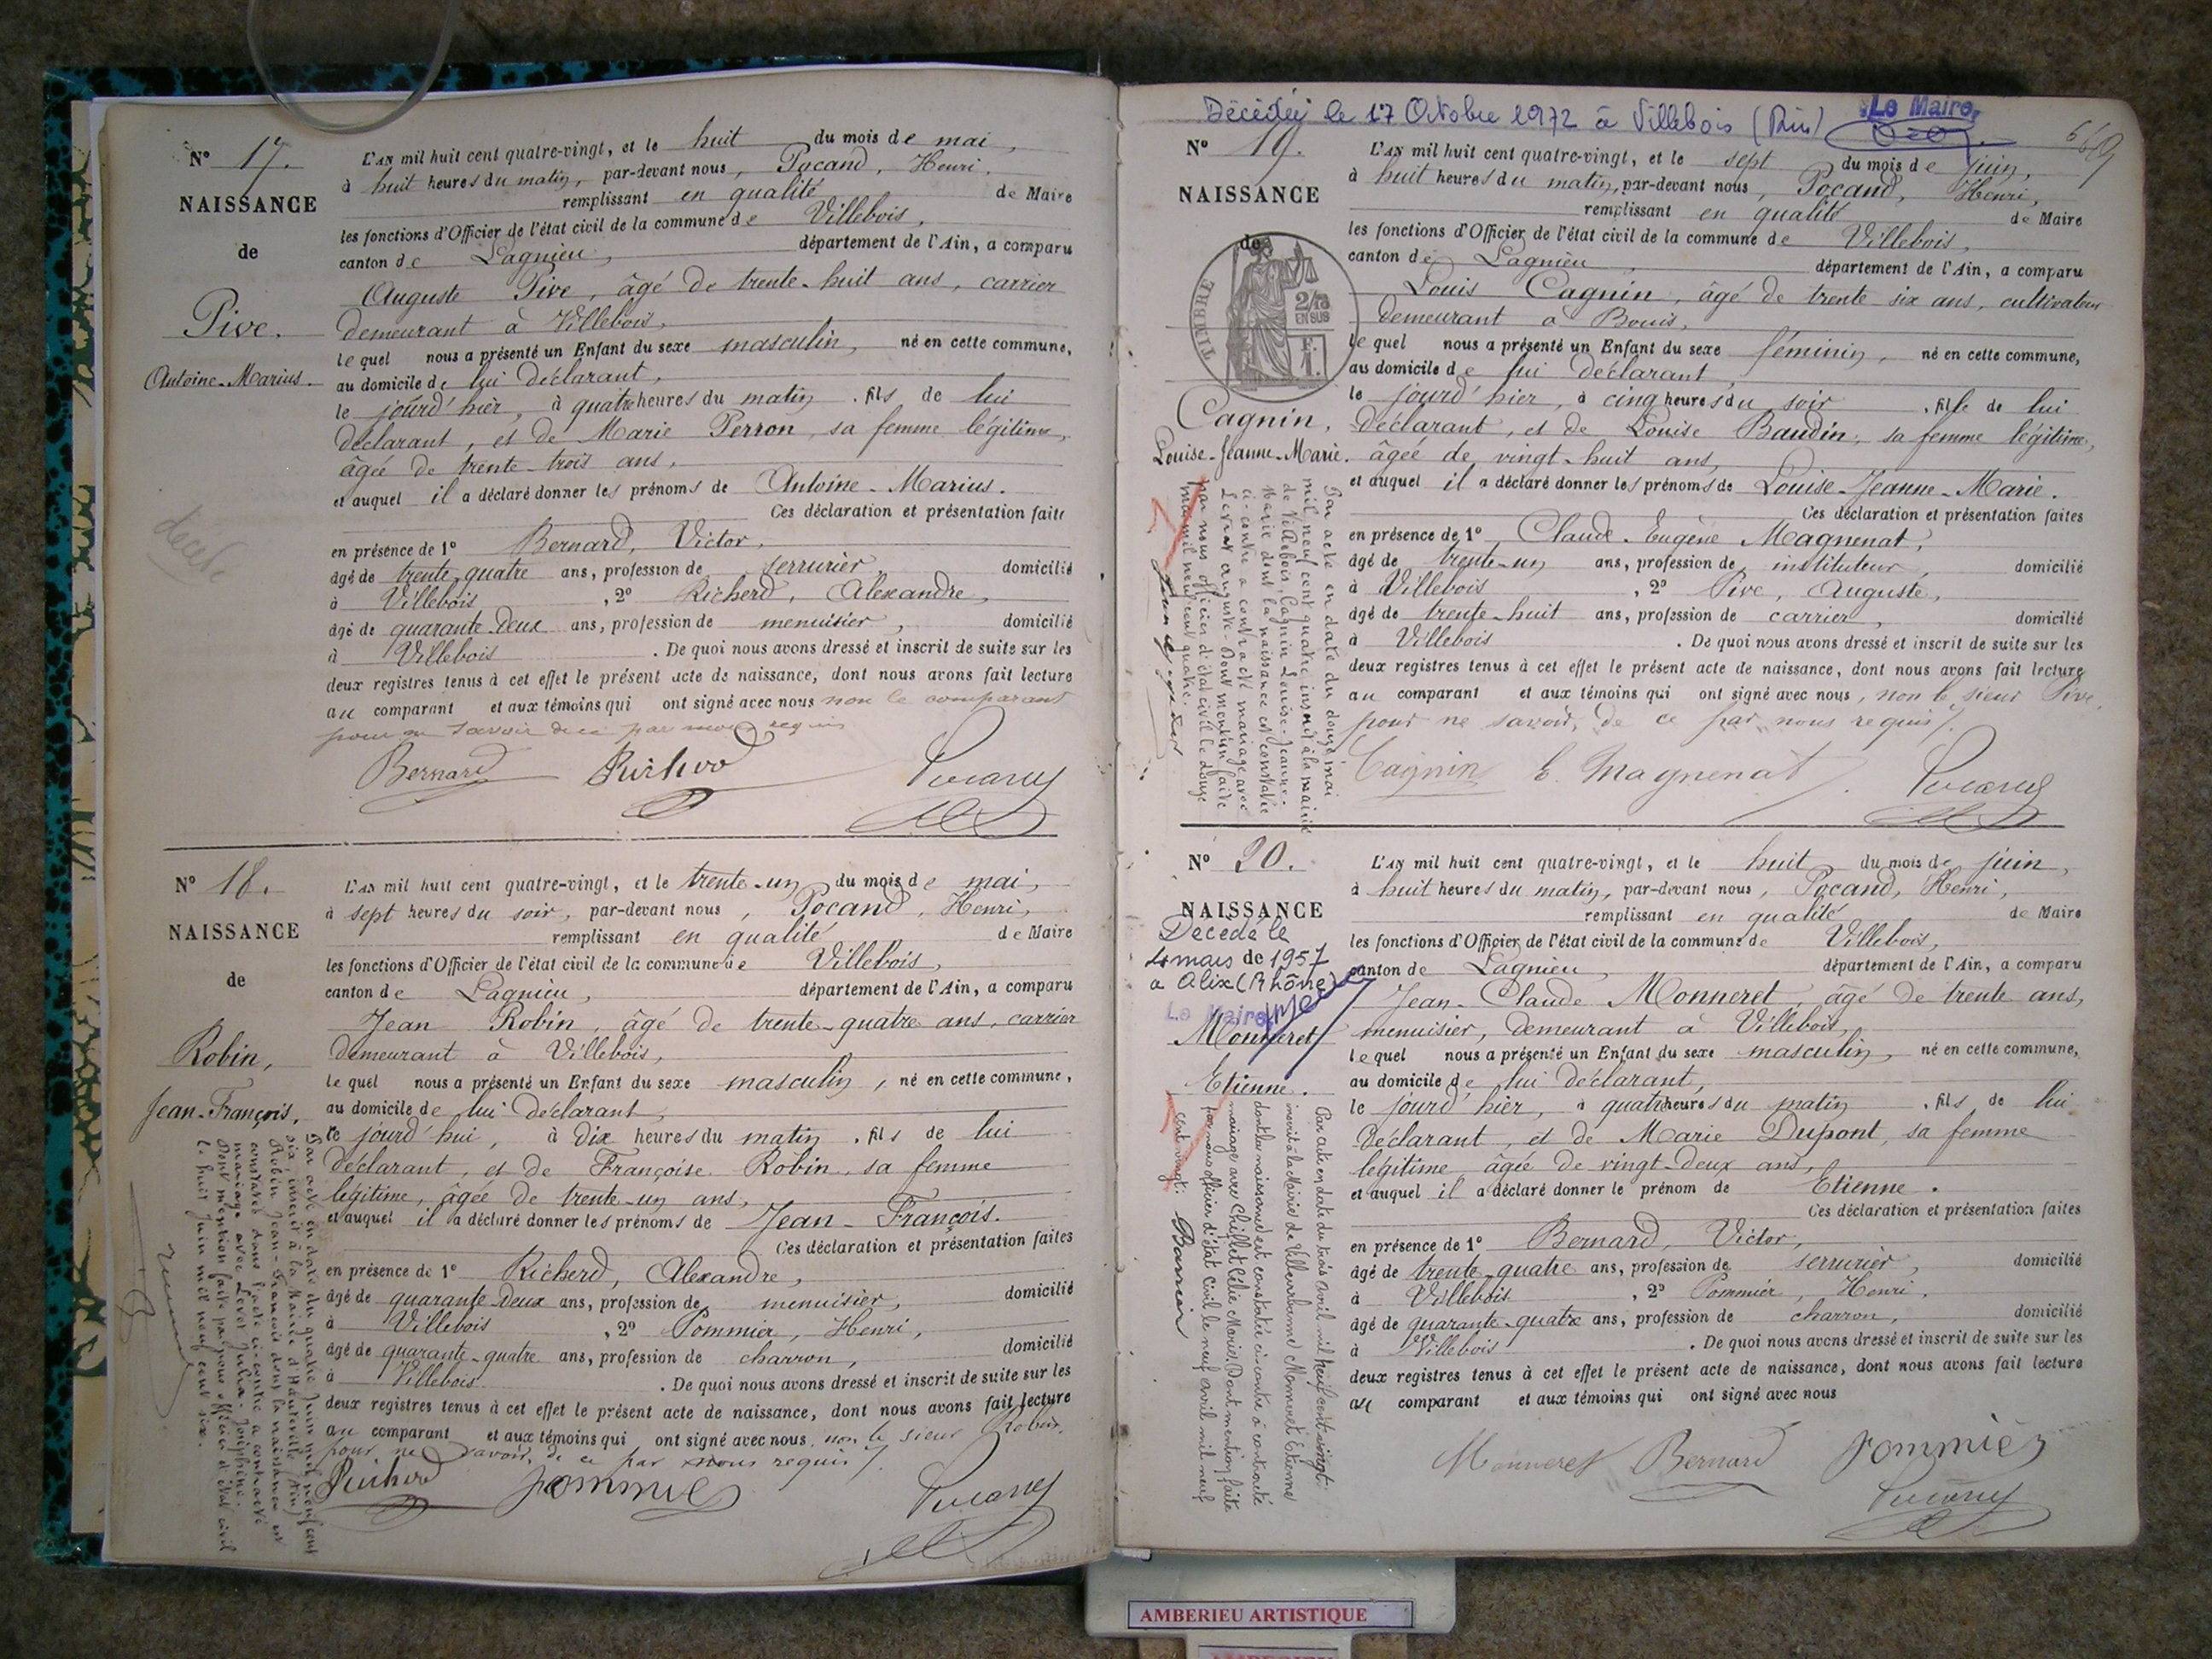 N° 17.
NAISSANCE
de
Pive.
Antoine-Marius.
décédé
L'an mil huit cent quatre-vingt, et le huit du mois de mai,
à huit heures du matin, par-devant nous, Pocand, Henri,
remplissant en qualité de Maire
les fonctions d'Officier de l'état civil de la commune de Villebois,
canton de Lagnieu, département de l'Ain, a comparu
Auguste Pive, âgé de trente-huit ans, carrier
demeurant à Villebois,
lequel nous a présenté un Enfant du sexe masculin, né en cette commune,
au domicile de lui déclarant,
le jourd'hier, à quatre heures du matin, fils de lui
déclarant, et de Marie Perron, sa femme légitime,
âgée de trente-trois ans,
et auquel il a déclaré donner les prénoms de Antoine-Marius.
Ces déclaration et présentation faites
en présence de 1° Bernard, Victor,
âgé de trente-quatre ans, profession de serrurier, domicilié
à Villebois, 2° Richerd, Alexandre,
âgé de quarante-deux ans, profession de menuisier, domicilié
à Villebois. De quoi nous avons dressé et inscrit de suite sur les
deux registres tenus à cet effet le présent acte de naissance, dont nous avons fait lecture
au comparant et aux témoins qui ont signé avec nous non le comparant
pour ne savoir de ce par nous requis
Bernard Richerd Pocand
N° 18.
NAISSANCE
de
Robin,
Jean-François.
L'an mil huit cent quatre-vingt, et le trente-un du mois de mai,
à sept heures du soir, par-devant nous, Pocand, Henri,
remplissant en qualité de Maire
les fonctions d'Officier de l'état civil de la commune de Villebois,
canton de Lagnieu, département de l'Ain, a comparu
Jean Robin, âgé de trente-quatre ans, carrier
demeurant à Villebois,
lequel nous a présenté un Enfant du sexe masculin, né en cette commune,
au domicile de lui déclarant,
le jourd'hui, à dix heures du matin, fils de lui
déclarant, et de Françoise Robin, sa femme
légitime, âgée de trente-un ans,
et auquel il a déclaré donner les prénoms de Jean-François.
Ces déclaration et présentation faites
en présence de 1° Richerd, Alexandre,
âgé de quarante-deux ans, profession de menuisier, domicilié
à Villebois, 2° Pommier, Henri,
âgé de quarante-quatre ans, profession de charron, domicilié
à Villebois. De quoi nous avons dressé et inscrit de suite sur les
deux registres tenus à cet effet le présent acte de naissance, dont nous avons fait lecture
au comparant et aux témoins qui ont signé avec nous, non le sieur Robin,
pour ne savoir, de ce par nous requis
Richerd Pommier Pocand
Par acte en date du quatre Juin mil neuf cent
six, inscrit à la Mairie d'Hauteville (Ain)
Robin Jean-François dont la naissance est
constatée dans l'acte ci-contre a contracté
mariage avec Levet Julia-Joséphine.
Dont mention faite par nous officier d'état civil
le huit Juin mil neuf cent six.
Décédée le 17 Octobre 1972 à Villebois (Ain) Le Maire,
N° 19.
NAISSANCE
de
TIMBRE
2/10
EN SUS
F.
1.
Cagnin,
Louise-Jeanne-Marie.
L'an mil huit cent quatre-vingt, et le sept du mois de juin,
à huit heures du matin, par-devant nous, Pocand, Henri,
remplissant en qualité de Maire
les fonctions d'Officier de l'état civil de la commune de Villebois,
canton de Lagnieu, département de l'Ain, a comparu
Louis Cagnin, âgé de trente six ans, cultivateur
demeurant à Bouis,
lequel nous a présenté un Enfant du sexe féminin, né en cette commune,
au domicile de lui déclarant,
le jourd'hier, à cinq heures du soir, fille de lui
déclarant, et de Louise Baudin, sa femme légitime,
âgée de vingt-huit ans,
et auquel il a déclaré donner les prénoms de Louise-Jeanne-Marie.
Ces déclaration et présentation faites
en présence de 1° Claude-Eugène Magnenat,
âgé de trente-un ans, profession de instituteur, domicilié
à Villebois, 2° Pive, Auguste,
âgé de trente-huit ans, profession de carrier, domicilié
à Villebois. De quoi nous avons dressé et inscrit de suite sur les
deux registres tenus à cet effet le présent acte de naissance, dont nous avons fait lecture
au comparant et aux témoins qui ont signé avec nous, non le sieur Pive,
pour ne savoir, de ce par nous requis.
Cagnin E. Magnenat Pocand
Par acte en date du douze mai
mil neuf cent quatre, inscrit à la mairie
de Villebois, Cagnin Louise-Jeanne-
Marie dont la naissance est constatée
ci-contre a contracté mariage avec
Levrat Auguste. Dont mention faite
par nous officier d'état civil le douze
mai mil neuf cent quatre.
N° 20.
NAISSANCE
Décédé le
4 mars de 1957
à Alix (Rhône)
Le Maire
Monneret
Etienne.
L'an mil huit cent quatre-vingt, et le huit du mois de juin,
à huit heures du matin, par-devant nous, Pocand, Henri,
remplissant en qualité de Maire
les fonctions d'Officier de l'état civil de la commune de Villebois,
canton de Lagnieu, département de l'Ain, a comparu
Jean-Claude Monneret, âgé de trente ans,
menuisier, demeurant à Villebois,
lequel nous a présenté un Enfant du sexe masculin, né en cette commune,
au domicile de lui déclarant,
le jourd'hier, à quatre heures du matin, fils de lui
déclarant, et de Marie Dupont, sa femme
légitime, âgée de vingt-deux ans,
et auquel il a déclaré donner le prénom de Etienne.
Ces déclaration et présentation faites
en présence de 1° Bernard, Victor,
âgé de trente-quatre ans, profession de serrurier, domicilié
à Villebois, 2° Pommier, Henri,
âgé de quarante-quatre ans, profession de charron, domicilié
à Villebois. De quoi nous avons dressé et inscrit de suite sur les
deux registres tenus à cet effet le présent acte de naissance, dont nous avons fait lecture
au comparant et aux témoins qui ont signé avec nous
Monneret Bernard Pommier
Pocand
Par acte en date du trois avril mil neuf cent vingt
inscrit à la Mairie de Villeurbanne Monneret Etienne
dont la naissance est constatée ci-contre a contracté
mariage avec Chillet Célie Marie. Dont mention faite
par nous officier d'état civil le neuf avril mil neuf
cent vingt.
AMBERIEU ARTISTIQUE
AMBERIEU